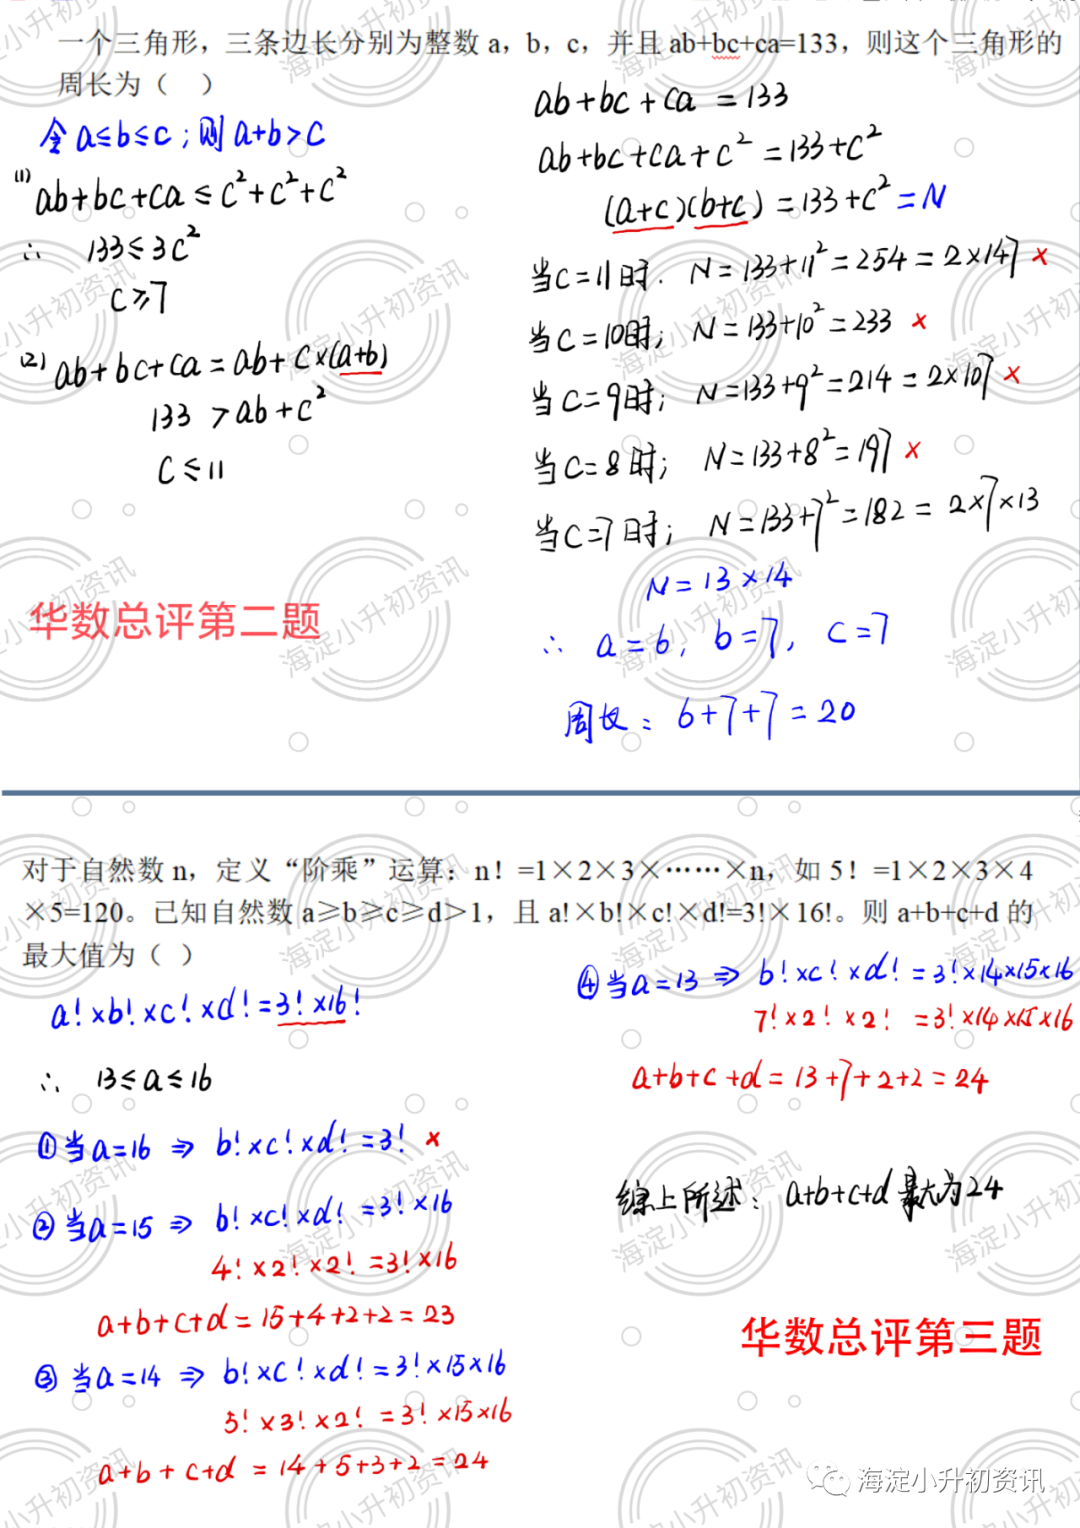 一个三角形，三条边长分别为整数 a，b，c，并且 ab+bc+ca=133，则这个三角形的
周长为（ ）
令 a≤b≤c；则 a+b>c
(1) ab+bc+ca≤c²+c²+c²
∴ 133≤3c²
c≥7
(2) ab+bc+ca=ab+c×(a+b)
133 >ab+c²
c≤11
华数总评第二题
ab+bc+ca =133
ab+bc+ca+c²=133+c²
(a+c)(b+c)=133+c²=N
当c=11时. N=133+11²=254=2×147 ×
当c=10时； N=133+10²=233 ×
当c=9时； N=133+9²=214=2×107 ×
当c=8时； N=133+8²=197 ×
当c=7时； N=133+7²=182=2×7×13
N=13×14
∴ a=6, b=7, c=7
周长：6+7+7=20
对于自然数 n，定义“阶乘”运算：n！=1×2×3×……×n，如 5！=1×2×3×4
×5=120。已知自然数 a≥b≥c≥d>1，且 a!×b!×c!×d!=3!×16!。则 a+b+c+d 的
最大值为（ ）
a!×b!×c!×d!=3!×16!
∴ 13≤a≤16
①当a=16 ⇒ b!×c!×d!=3! ×
②当a=15 ⇒ b!×c!×d!=3!×16
4!×2!×2!=3!×16
a+b+c+d=15+4+2+2=23
③当a=14 ⇒ b!×c!×d!=3!×15×16
5!×3!×2!=3!×15×16
a+b+c+d=14+5+3+2=24
④当a=13 ⇒ b!×c!×d!=3!×14×15×16
7!×2!×2!=3!×14×15×16
a+b+c+d=13+7+2+2=24
综上所述：a+b+c+d最大为24
华数总评第三题
海淀小升初资讯